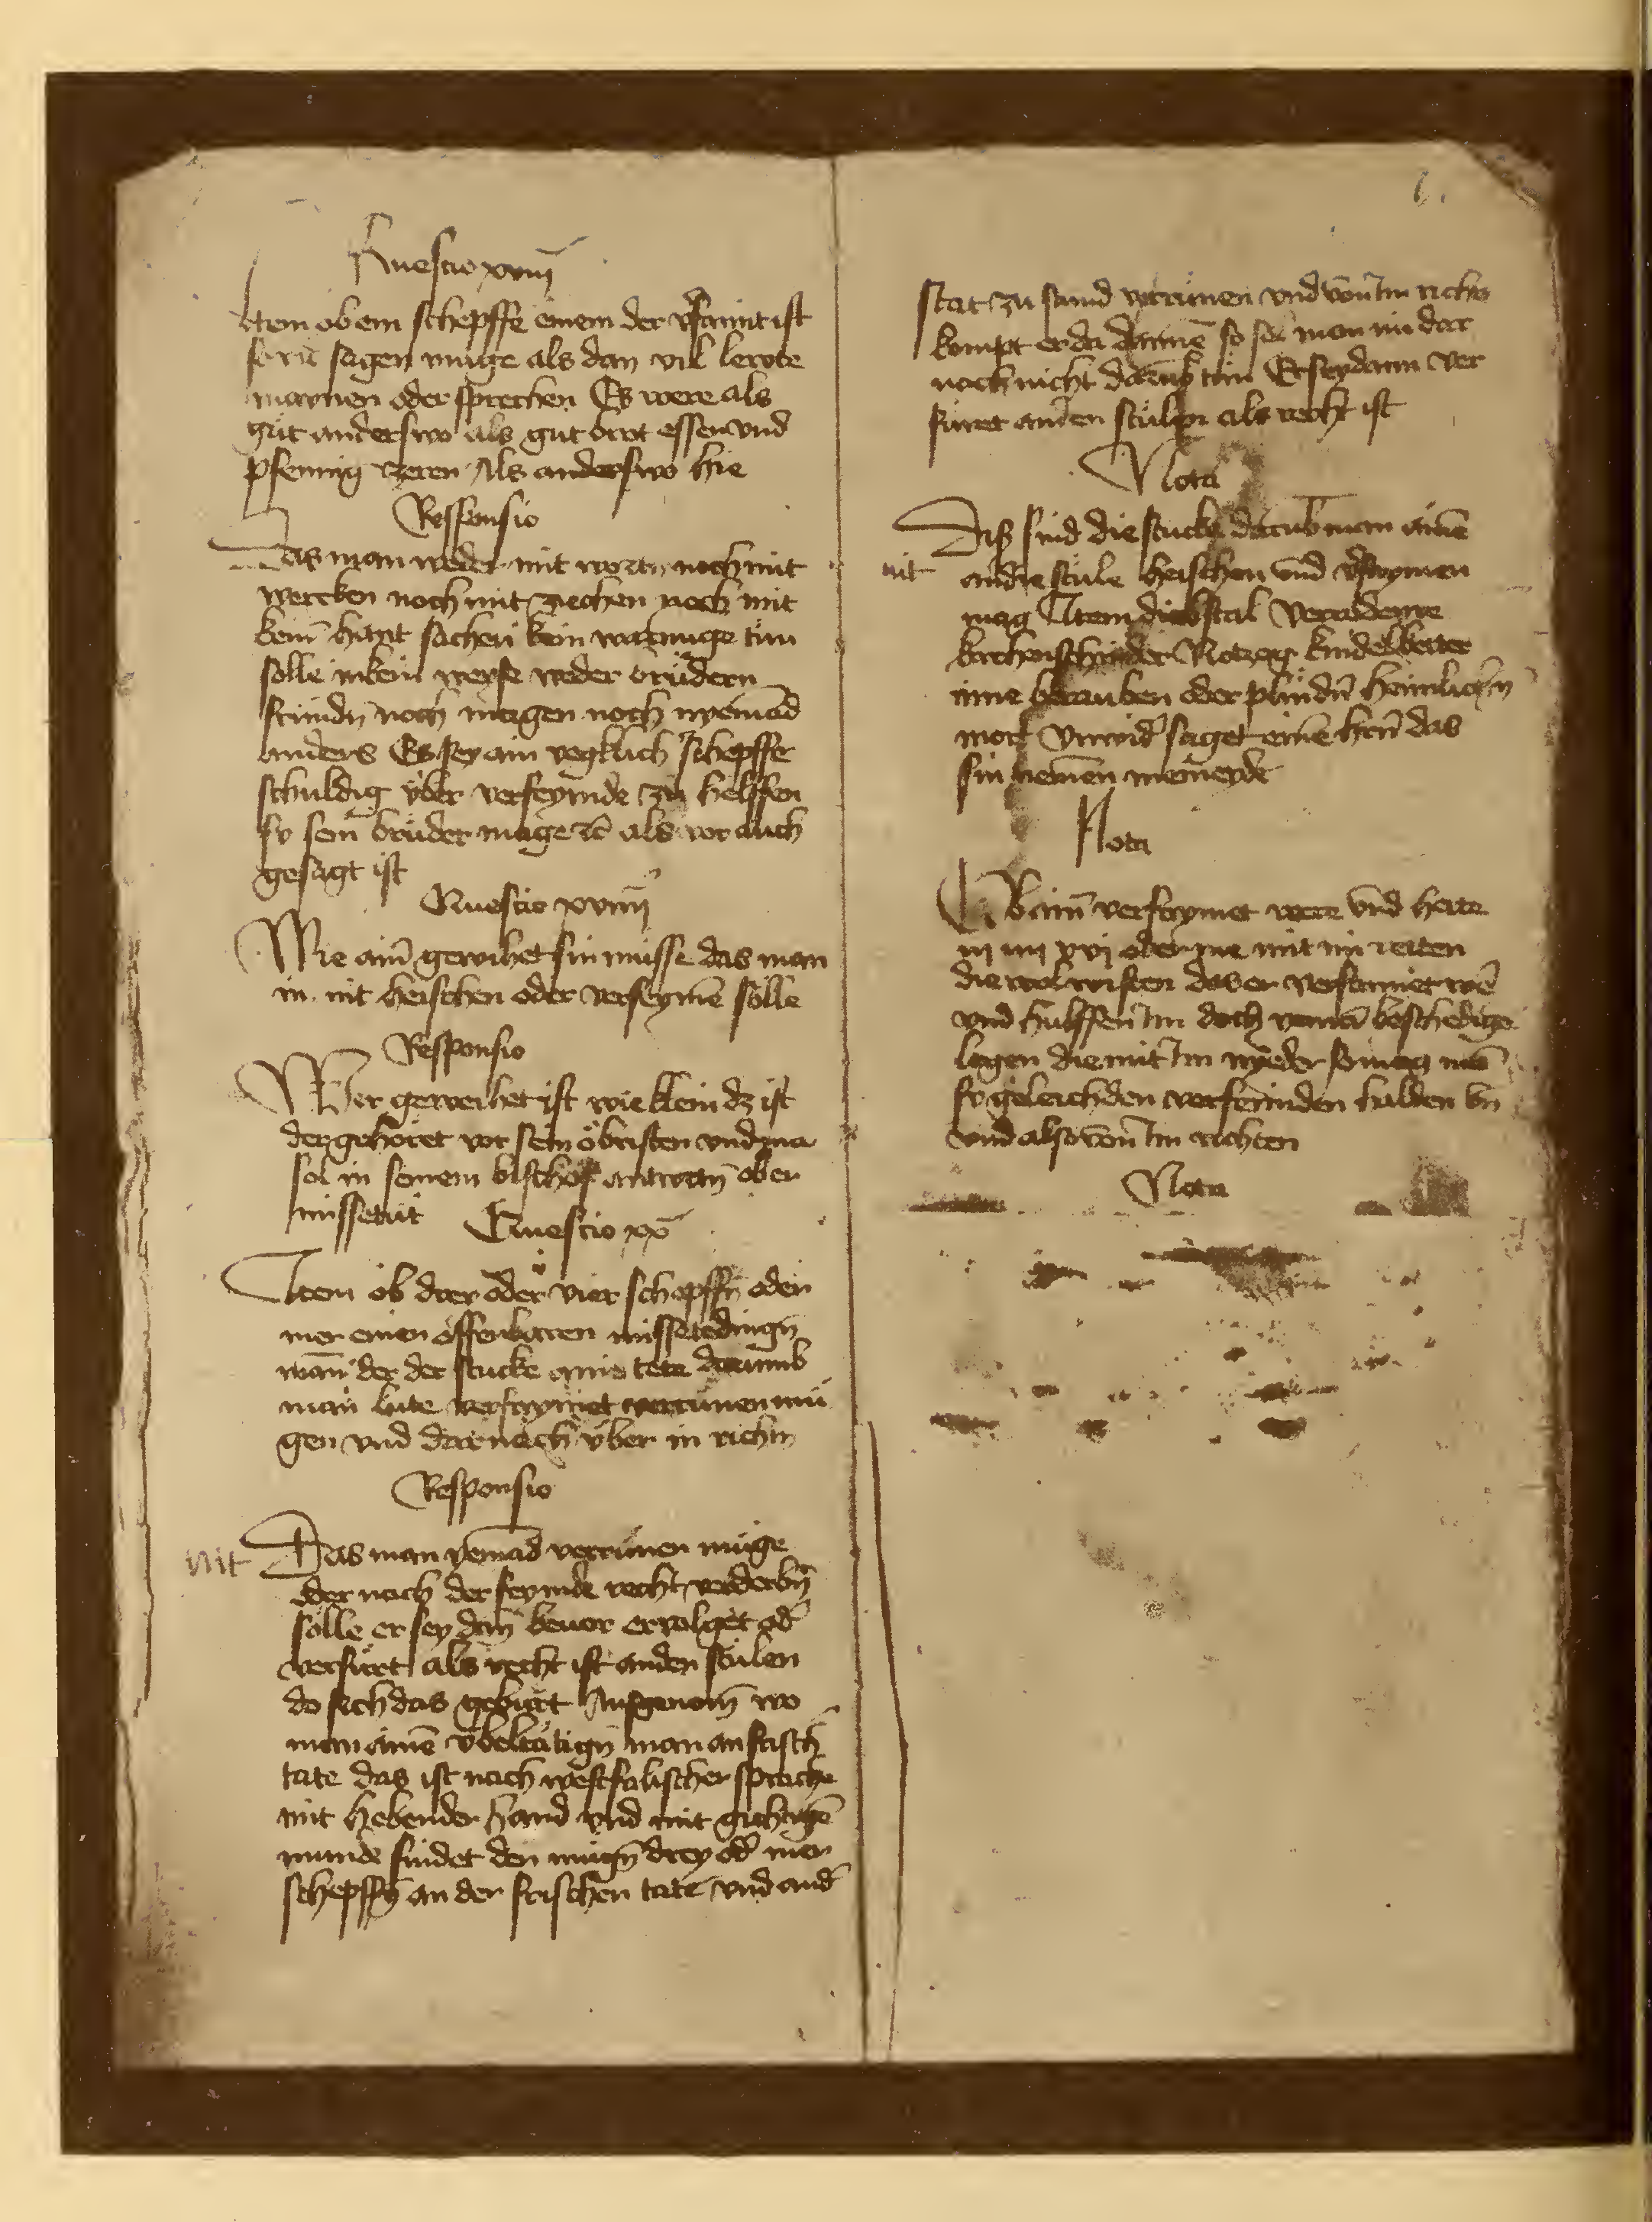 Questio xviij
Item ob ein schepffe einem der v̉faimt ist
sagen muge als dan vil lewte
maynen oder sprechen Es were als
gut anderswo als gut brot essen vnd
pfennig zeren Als anderswo hie
Responsio
Das man weder mit wortn̄ noch mit
wercken noch mit zeichen noch mit
kein̄ hant sachen kein warnuge tun
solle in kein weyse weder brüdern
freundn̄ noch magen noch nyemād
anders Es sey ain yegklich schepffe
schuldig über verfeymde zu helffen
sein brüder mage ꝛc̄ als vor auch
gesagt ist
Questio xviiij
Wie ain̄ gewihet sin müsse das man
in nit heischen oder verfeymē sölle
Responsio
Wer geweihet ist wie klein dz ist
der gehöret vor sein öbristen vnd ma
sol in seinem bischof antwrtn̄ ob er
missetüt
Questio xx
Item ob drey oder vier schepffn̄ oder
mer einen offenbaren missetedingn̄
man̄ der der stucke ains tete darumb
man lüte verfaymet verrümen mü
gen vnd darnach über in richtn̄
Responsio
nit Das man yemād verrümen müge
oder nach der feymde recht verderbn̄
sölle er sey dan̄ beuor ervolget od̉
verfürt als recht ist an den stülen
do sich das gebürt Ausgenom̄ wo
man ainē übeltätign̄ man an frisch̉
tate das ist nach westfalischer sprache
mit hebender hand vnd mit gichtigē
munde findet den mügn̄ drey od̉ mer
schepffn̄ an der frischen tate vnd an d̉
6.
stat zu hand verrümen vnd von Im richtn̄
kompt er da dannē so sol man im dar
nach nicht darūb tün Er sey dann ver
füret an den stülen als recht ist
Nota
Diß sind die stucke darūb man ainē
nit an die stüle heischen vnd v̉faymen
mag Item diebstal Verreterye
kirchenschinder Notzog kindelbetter
inne berauben oder plündn̄ heimlichn̄
mort Vnwid̉ saget einē hern̄ das
sin nemen meineyde
Nota
Ob ain̄ verfaymet were vnd hette
iij iiij xvj oder me mit im reiten
die wol wisten das er verfaimet wē
vnd hulffen Im doch beschedige
legen die mit Im nyeder so mag mā
sy geleich den verfeimden halden
vnd also von Im richten
Nota